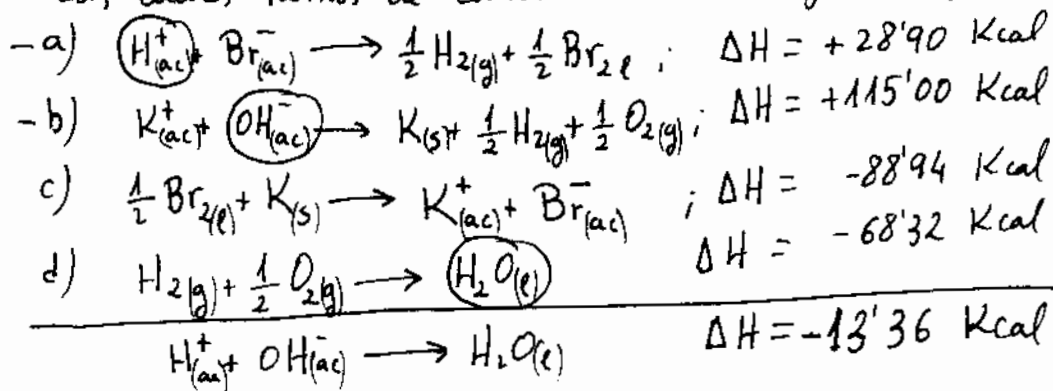 -a) H⁺(ac) + Br⁻(ac) ⟶ 1/2 H₂(g) + 1/2 Br₂ℓ ; ΔH = +28'90 Kcal
-b) K⁺(ac) + OH⁻(ac) ⟶ K(s) + 1/2 H₂(g) + 1/2 O₂(g) ; ΔH = +115'00 Kcal
c) 1/2 Br₂(ℓ) + K(s) ⟶ K⁺(ac) + Br⁻(ac) ; ΔH = -88'94 Kcal
d) H₂(g) + 1/2 O₂(g) ⟶ H₂O(ℓ) ΔH = -68'32 Kcal
H⁺(ac) + OH⁻(ac) ⟶ H₂O(ℓ) ΔH = -13'36 Kcal